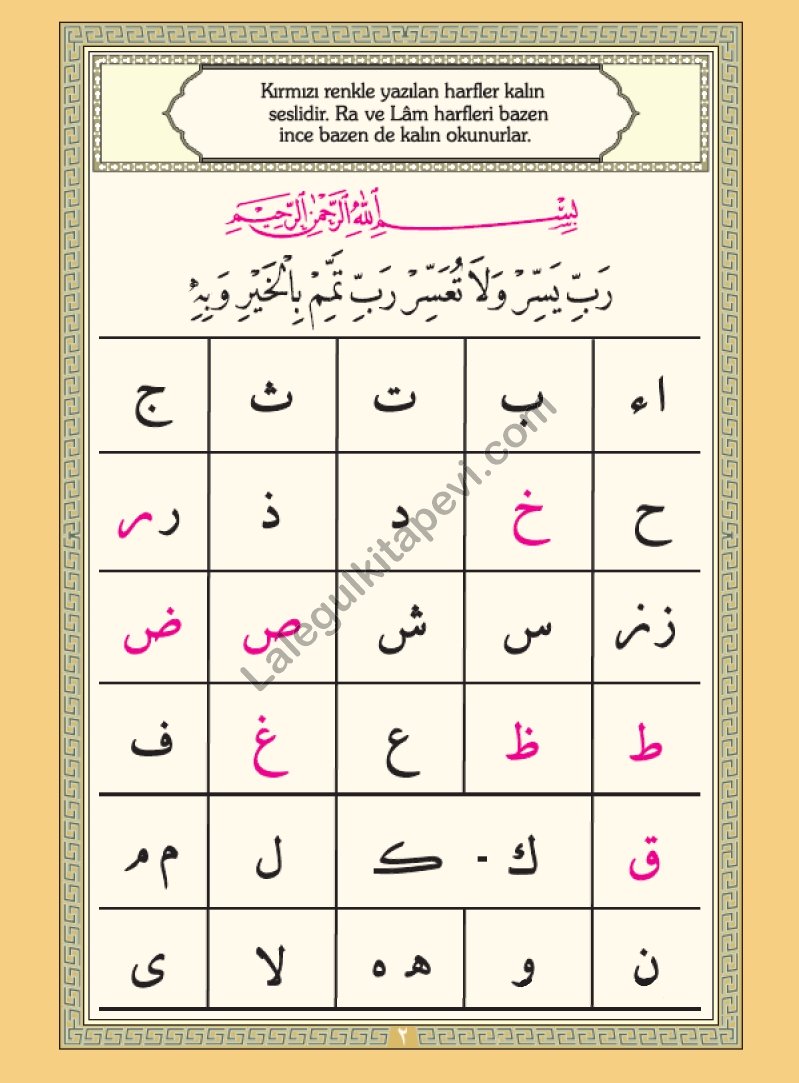 Kırmızı renkle yazılan harfler kalın
seslidir. Ra ve Lâm harfleri bazen
ince bazen de kalın okunurlar.
بِسْمِ اللهِ الرَّحْمٰنِ الرَّحِيمِ
رَبِّ يَسِّرْ وَلَا تُعَسِّرْ رَبِّ تَمِّمْ بِالْخَيْرِ وَبِهِ
ا ء ب ت ث ج
ح خ د ذ ر ر
ز ز س ش ص ض
ط ظ ع غ ف
ق ك - ك ل م م
ن و ه ه لا ى
٢
Lalegulkitapevi.com